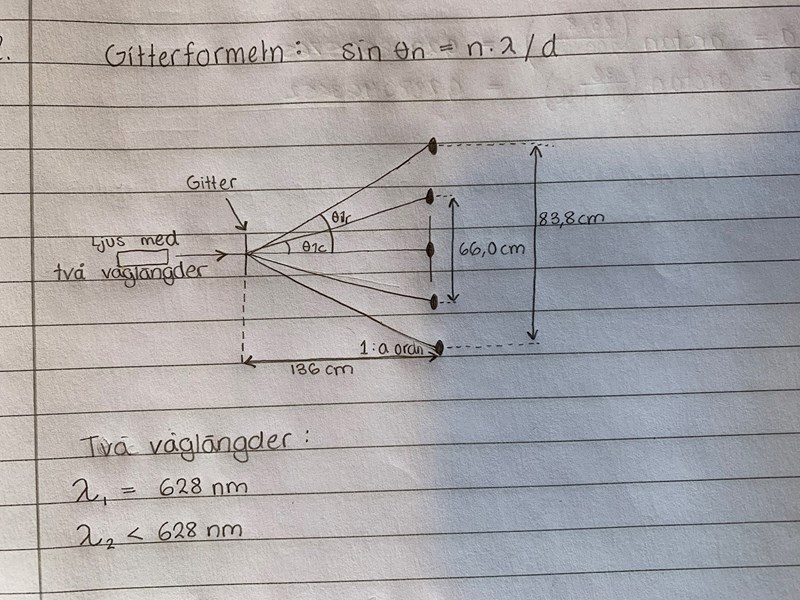 2.
Gitterformeln: sin θn = n·λ/d
Gitter
θ1r
83,8cm
Ljus med
två våglängder
θ1c
66,0cm
1:a ordn
136 cm
Två våglängder:
λ₁ = 628 nm
λ₂ < 628 nm